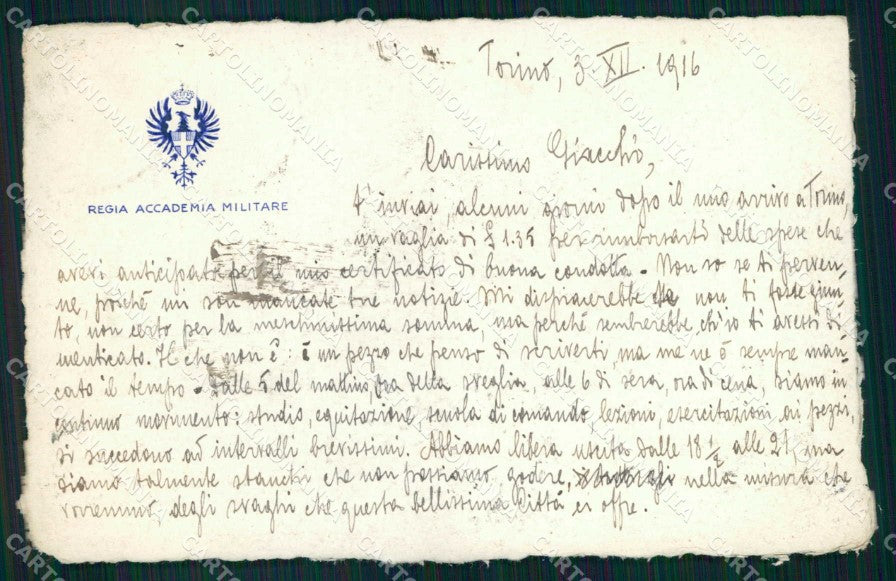 Torino, 3. XII. 1916
REGIA ACCADEMIA MILITARE
Carissimo Giacchò,
t'inviai, alcuni giorni dopo il mio arrivo a Torino,
un vaglia di £ 1.35 per rimborsarti delle spese che
avevi anticipate per il mio certificato di buona condotta - Non so se ti perven-
ne, poiché mi son mancate tue notizie. Mi dispiacerebbe non ti fosse giun-
to, non certo per la meschinissima somma, ma perché sembrerebbe ch'io ti avessi di
menticato. Il che non è: è un pezzo che penso di scriverti, ma me ne è sempre man-
cato il tempo - Dalle 5 del mattino, ora della sveglia, alle 6 di sera, ora di cena, siamo in
continuo movimento: studio, equitazione, scuola di comando, lezioni, esercitazioni ai pezzi,
si succedono ad intervalli brevissimi. Abbiamo libera uscita dalle 18 1/2 alle 21, ma
siamo talmente stanchi che non possiamo godere, nella misura che
vorremmo, degli svaghi che questa bellissima città ci offre.